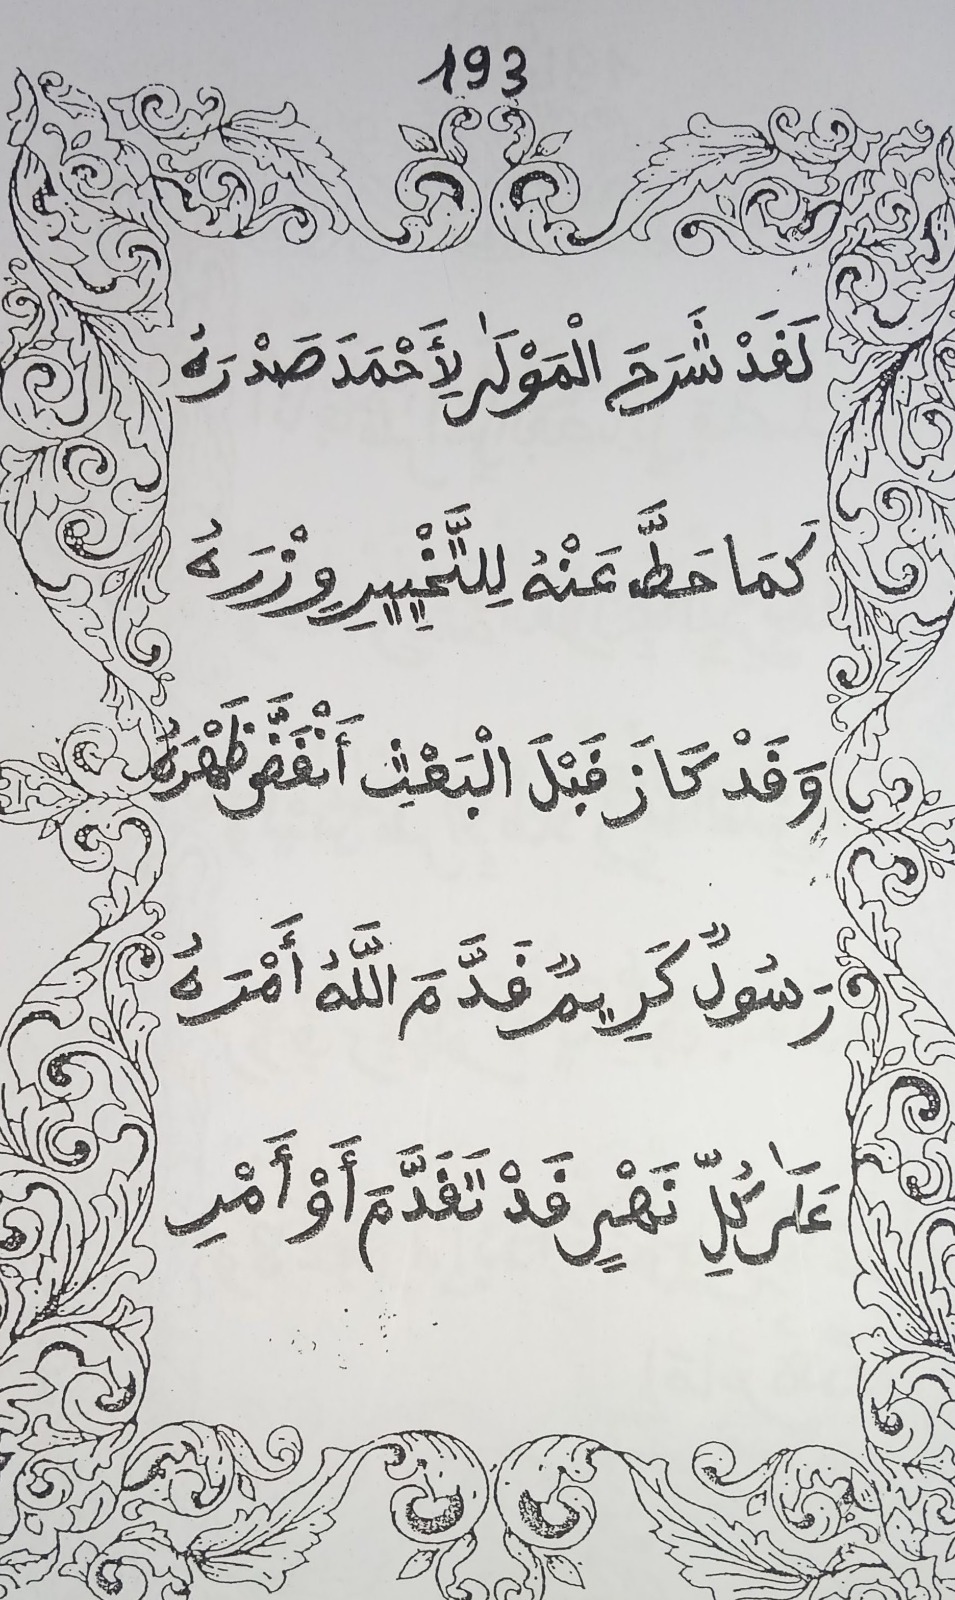 193
لَقَدْ شَرَحَ الْمَوْلَى لِأَحْمَدَ صَدْرَهُ
كَمَا حَطَّ عَنْهُ لِلتَّخْيِيرِ وِزْرَهُ
وَقَدْ كَانَ قَبْلَ الْبَعْثِ أَنْقَضَّ ظَهْرَهُ
رَسُولٌ كَرِيمٌ قَدَّمَ اللَّهُ أَمْرَهُ
عَلَى كُلِّ نَهْيٍ قَدْ تَقَدَّمَ أَوْ أَمْرِ